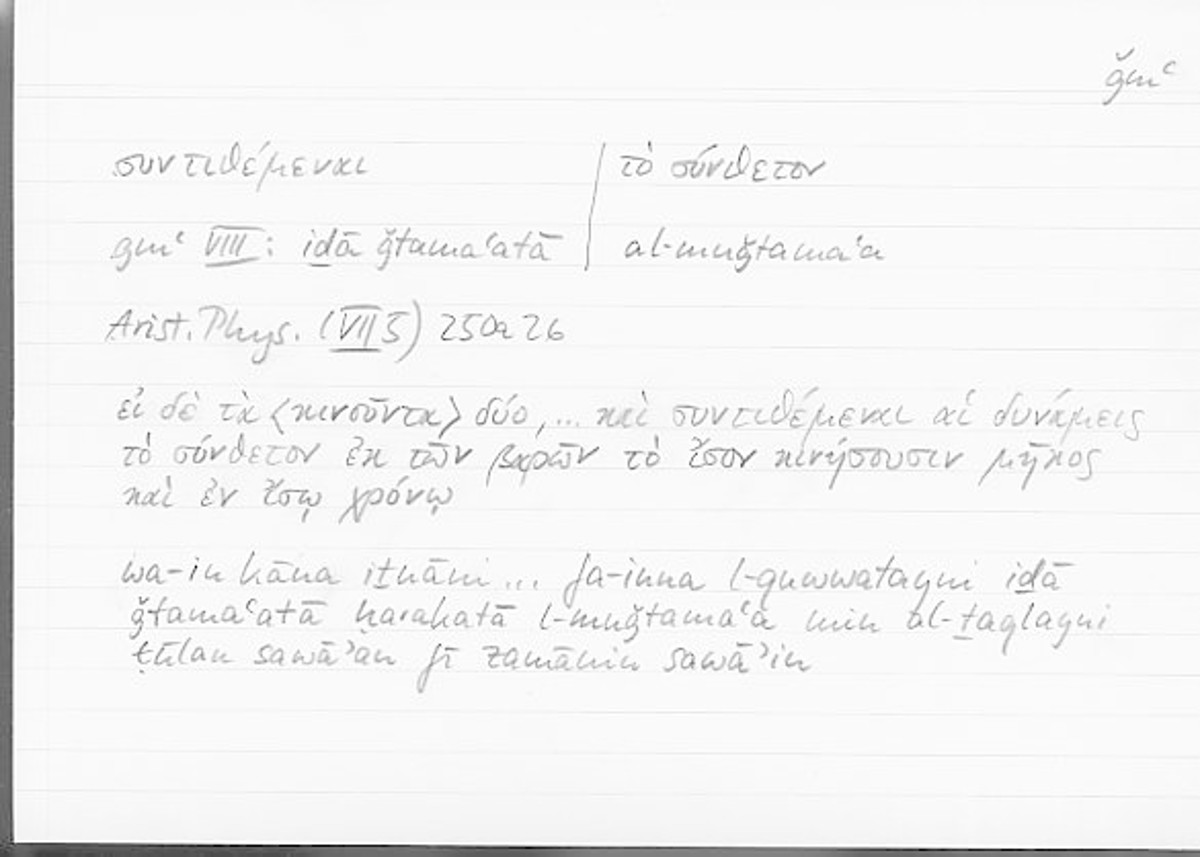 ǧmʿ
συντιθέμεναι | τὸ σύνθετον
ǧmʿ VIII: iḏā ǧtamaʿatā | al-muǧtamaʿa
Arist. Phys. (VII 5) 250a26
εἰ δὲ τὰ <κινοῦντα> δύο, ... καὶ συντιθέμεναι αἱ δυνάμεις
τὸ σύνθετον ἐκ τῶν βαρῶν τὸ ἴσον κινήσουσιν μῆκος
καὶ ἐν ἴσῳ χρόνῳ
wa-in kāna iṯnāni... fa-inna l-quwwatayni iḏā
ǧtamaʿatā ḥarakatā l-muǧtamaʿa min al-ṯaqlayni
ṭūlan sawāʾan fī zamānin sawāʾin